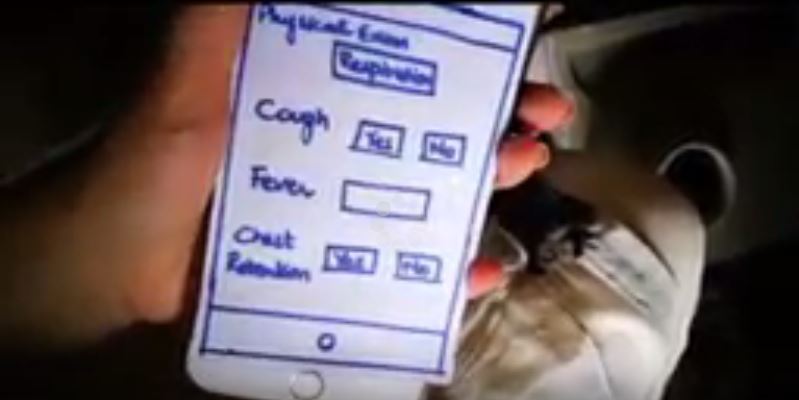 Physical Exam
Respiration
Cough Yes No
Fever
Chest Yes No
Retention